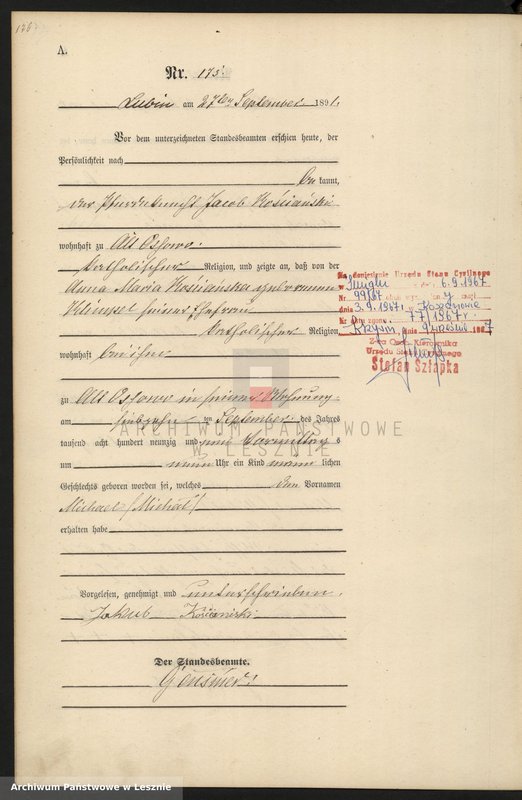 A.
Nr. 175.
Lubin am 27ten September 1891.
Vor dem unterzeichneten Standesbeamten erschien heute, der
Persönlichkeit nach
kannt,
der Pferdeknecht Jacob Kościański
wohnhaft zu Alt Osowo.
katholischer Religion, und zeigte an, daß von der
Anna Maria Kościańska geborenen
seiner Ehefrau
katholischer Religion,
wohnhaft bei ihm
zu Alt Osowo in seiner Wohnung
am ten September des Jahres
tausend acht hundert neunzig und eins Vormittags
um neun Uhr ein Kind männlichen
Geschlechts geboren worden sei, welches den Vornamen
Michael (Michał)
erhalten habe
Vorgelesen, genehmigt und unterschrieben.
Jakub Kościański
Der Standesbeamte.
Na doniesienie Urzędu Stanu Cywilnego
w z dnia 6.9.1967
Nr 99/67
dnia 3.9.1967r.
Nr aktu zgonu 77/1967r.
Krzywiń dnia 1967
Z-ca Kierownika
Urzędu Stanu Cywilnego
Stefan Szłapka
ARCHIWUM PAŃSTWOWE
W LESZNIE
Archiwum Państwowe w Lesznie